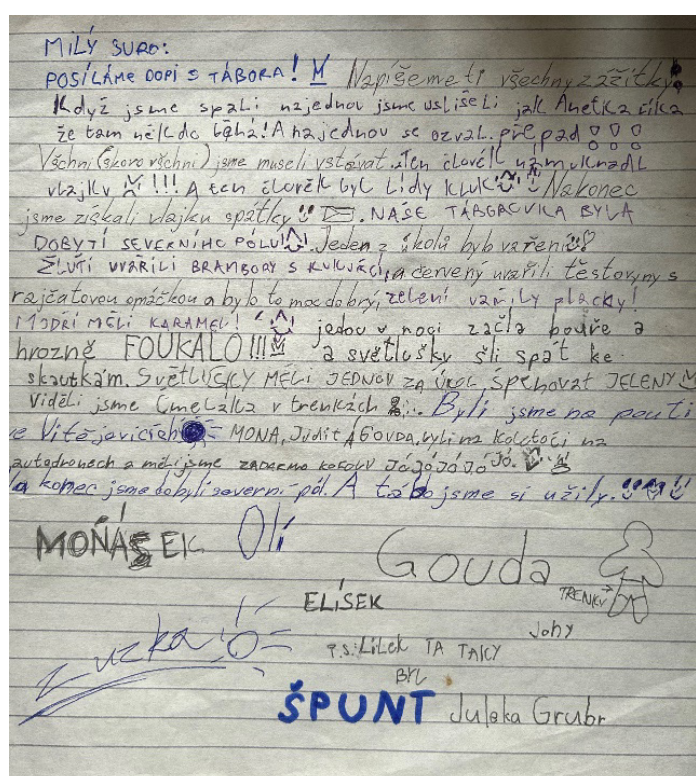 MILÝ SURO:
POSÍLÁME DOPI S TÁBORA! Napíšeme ti všechny zážitky
Když jsme spali najednou jsme uslišeli jak Anetka říka
že tam někdo běhá! A najednou se ozval. přepad !!!
Všchni (skoro všchni) jsme museli vstávat. Ten člověk nám ukradl
vlajkv !!! A ten člověk byl Lídy kluk Nakonec
jsme získali vlajku spátky. NAŠE TÁBOROVKA BYLA
DOBYTÍ SEVERNÍHO PÓLU! Jeden z úkolů byb vaření
ŽLUTÍ UVAŘILI BRAMBORY S KUKUŘICÍ, a červený uvařili těstoviny s
rajčatovou omáčkou a bylo to moc dobrý, zelení vařily placky!
MODŘÍ MĚLI KARAMEL! jedou v noci začla bouře a
hrozně FOUKALO!!! a světlušky šli spát ke
skautkám. SVĚTLUŠKY MĚLI JEDNOU ZA ÚKOL ŠPEHOVAT JELENY
Viděli jsme Čmeláka v trenkách Byli jsme na pouti
ve Vitějovicích MONA, Judit A GOUDA, byli na kolotoči na
autodronech a měli jsme ZADARMO KOFOLU JÓ JÓ JÓ JÓ JÓ.
Na konec jsme dobyli severní pól. A tábo jsme si užily.
MOŇÁSEK Olí
Gouda
ELÍSEK
TRENKY
Johy
Zuzka
P.S: LíLEK TA TAKY
BYL
ŠPUNT Julska Grubr